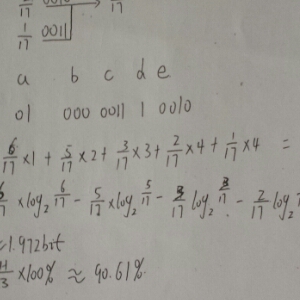 2/17 0010 → /17
1/17 0011
a b c d e
01 000 0011 1 0010
6/17 ×1 + 5/17 ×2 + 3/17 ×3 + 2/17 ×4 + 1/17 ×4 =
6/17 ×log₂ 6/17 − 5/17 ×log₂ 5/17 − 3/17 log₂ 3/17 − 2/17 log₂
=1.972bit
H/3 ×100% ≈ 90.61%